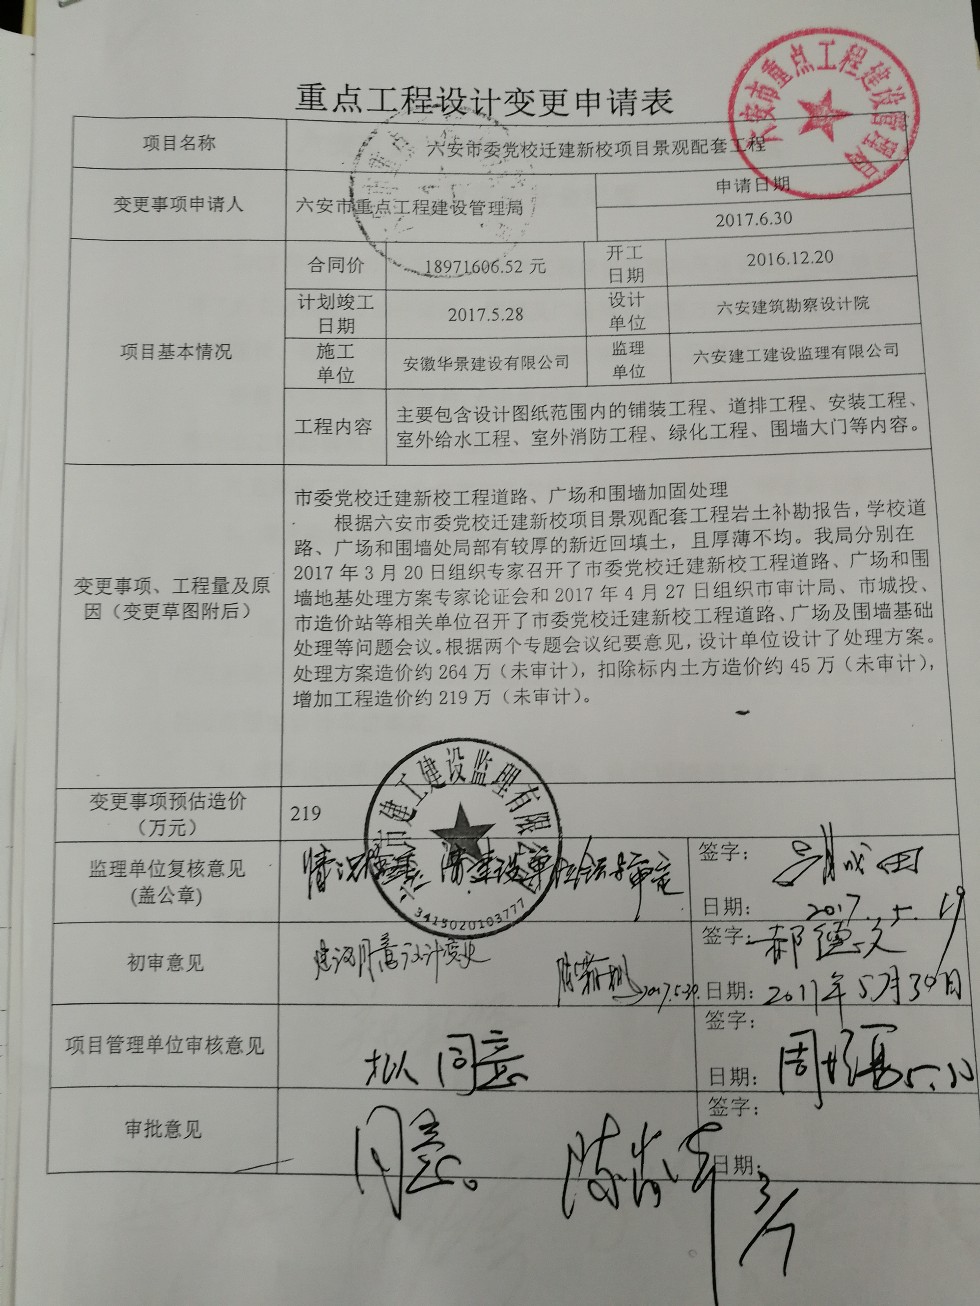 重点工程设计变更申请表
六安市重点工程建设管理局
项目名称
六安市委党校迁建新校项目景观配套工程
变更事项申请人
六安市重点工程建设管理局
申请日期
2017.6.30
项目基本情况
合同价
18971606.52 元
开工
日期
2016.12.20
计划竣工
日期
2017.5.28
设计
单位
六安建筑勘察设计院
施工
单位
安徽华景建设有限公司
监理
单位
六安建工建设监理有限公司
工程内容
主要包含设计图纸范围内的铺装工程、道排工程、安装工程、
室外给水工程、室外消防工程、绿化工程、围墙大门等内容。
变更事项、工程量及原
因（变更草图附后）
市委党校迁建新校工程道路、广场和围墙加固处理
根据六安市委党校迁建新校项目景观配套工程岩土补勘报告，学校道
路、广场和围墙处局部有较厚的新近回填土，且厚薄不均。我局分别在
2017 年 3 月 20 日组织专家召开了市委党校迁建新校工程道路、广场和围
墙地基处理方案专家论证会和 2017 年 4 月 27 日组织市审计局、市城投、
市造价站等相关单位召开了市委党校迁建新校工程道路、广场及围墙基础
处理等问题会议。根据两个专题会议纪要意见，设计单位设计了处理方案。
处理方案造价约 264 万（未审计），扣除标内土方造价约 45 万（未审计），
增加工程造价约 219 万（未审计）。
变更事项预估造价
（万元）
219
监理单位复核意见
(盖公章)
情况属实
建工建设监理有限
3415020103777
签字：
日期：
2017.5.19
初审意见
建议同意设计变更
2017.5.30.
签字：
日期：
2017年5月30日
项目管理单位审核意见
拟同意
签字：
日期：
审批意见
同意。
签字：
日期：
3/7